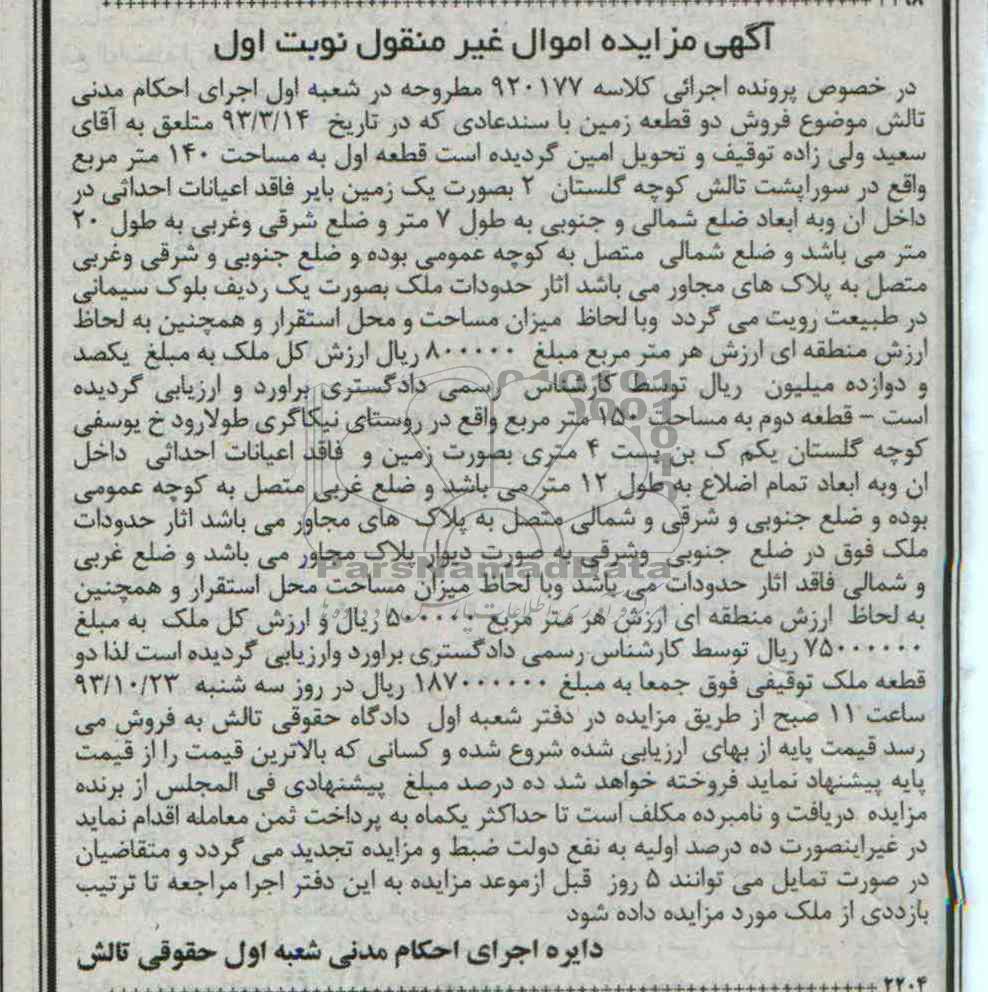 آگهی مزایده اموال غیر منقول نوبت اول
در خصوص پرونده اجرائی کلاسه ۹۲۰۱۷۷ مطروحه در شعبه اول اجرای احکام مدنی
تالش موضوع فروش دو قطعه زمین با سندعادی که در تاریخ ۹۳/۳/۱۴ متلعق به آقای
سعید ولی زاده توقیف و تحویل امین گردیده است قطعه اول به مساحت ۱۴۰ متر مربع
واقع در سوراپشت تالش کوچه گلستان ۲ بصورت یک زمین بایر فاقد اعیانات احداثی در
داخل ان وبه ابعاد ضلع شمالی و جنوبی به طول ۷ متر و ضلع شرقی وغربی به طول ۲۰
متر می باشد و ضلع شمالی متصل به کوچه عمومی بوده و ضلع جنوبی و شرقی وغربی
متصل به پلاک های مجاور می باشد اثار حدودات ملک بصورت یک ردیف بلوک سیمانی
در طبیعت رویت می گردد وبا لحاظ میزان مساحت و محل استقرار و همچنین به لحاظ
ارزش منطقه ای ارزش هر متر مربع مبلغ ۸۰۰۰۰۰ ریال ارزش کل ملک به مبلغ یکصد
و دوازده میلیون ریال توسط کارشناس رسمی دادگستری براورد و ارزیابی گردیده
است - قطعه دوم به مساحت ۱۵۰ متر مربع واقع در روستای نیکاگری طولارود خ یوسفی
کوچه گلستان یکم ک بن بست ۴ متری بصورت زمین و فاقد اعیانات احداثی داخل
ان وبه ابعاد تمام اضلاع به طول ۱۲ متر می باشد و ضلع غربی متصل به کوچه عمومی
بوده و ضلع جنوبی و شرقی و شمالی متصل به پلاک های مجاور می باشد اثار حدودات
ملک فوق در ضلع جنوبی وشرقی به صورت دیوار پلاک مجاور می باشد و ضلع غربی
و شمالی فاقد اثار حدودات می باشد وبا لحاظ میزان مساحت محل استقرار و همچنین
به لحاظ ارزش منطقه ای ارزش هر متر مربع ۵۰۰۰۰۰ ریال و ارزش کل ملک به مبلغ
۷۵۰۰۰۰۰۰ ریال توسط کارشناس رسمی دادگستری براورد وارزیابی گردیده است لذا دو
قطعه ملک توقیفی فوق جمعا به مبلغ ۱۸۷۰۰۰۰۰۰ ریال در روز سه شنبه ۹۳/۱۰/۲۳
ساعت ۱۱ صبح از طریق مزایده در دفتر شعبه اول دادگاه حقوقی تالش به فروش می
رسد قیمت پایه از بهای ارزیابی شده شروع شده و کسانی که بالاترین قیمت را از قیمت
پایه پیشنهاد نماید فروخته خواهد شد ده درصد مبلغ پیشنهادی فی المجلس از برنده
مزایده دریافت و نامبرده مکلف است تا حداکثر یکماه به پرداخت ثمن معامله اقدام نماید
در غیراینصورت ده درصد اولیه به نفع دولت ضبط و مزایده تجدید می گردد و متقاضیان
در صورت تمایل می توانند ۵ روز قبل ازموعد مزایده به این دفتر اجرا مراجعه تا ترتیب
بازددی از ملک مورد مزایده داده شود
دایره اجرای احکام مدنی شعبه اول حقوقی تالش
۲۲۰۴
ParsNamadData